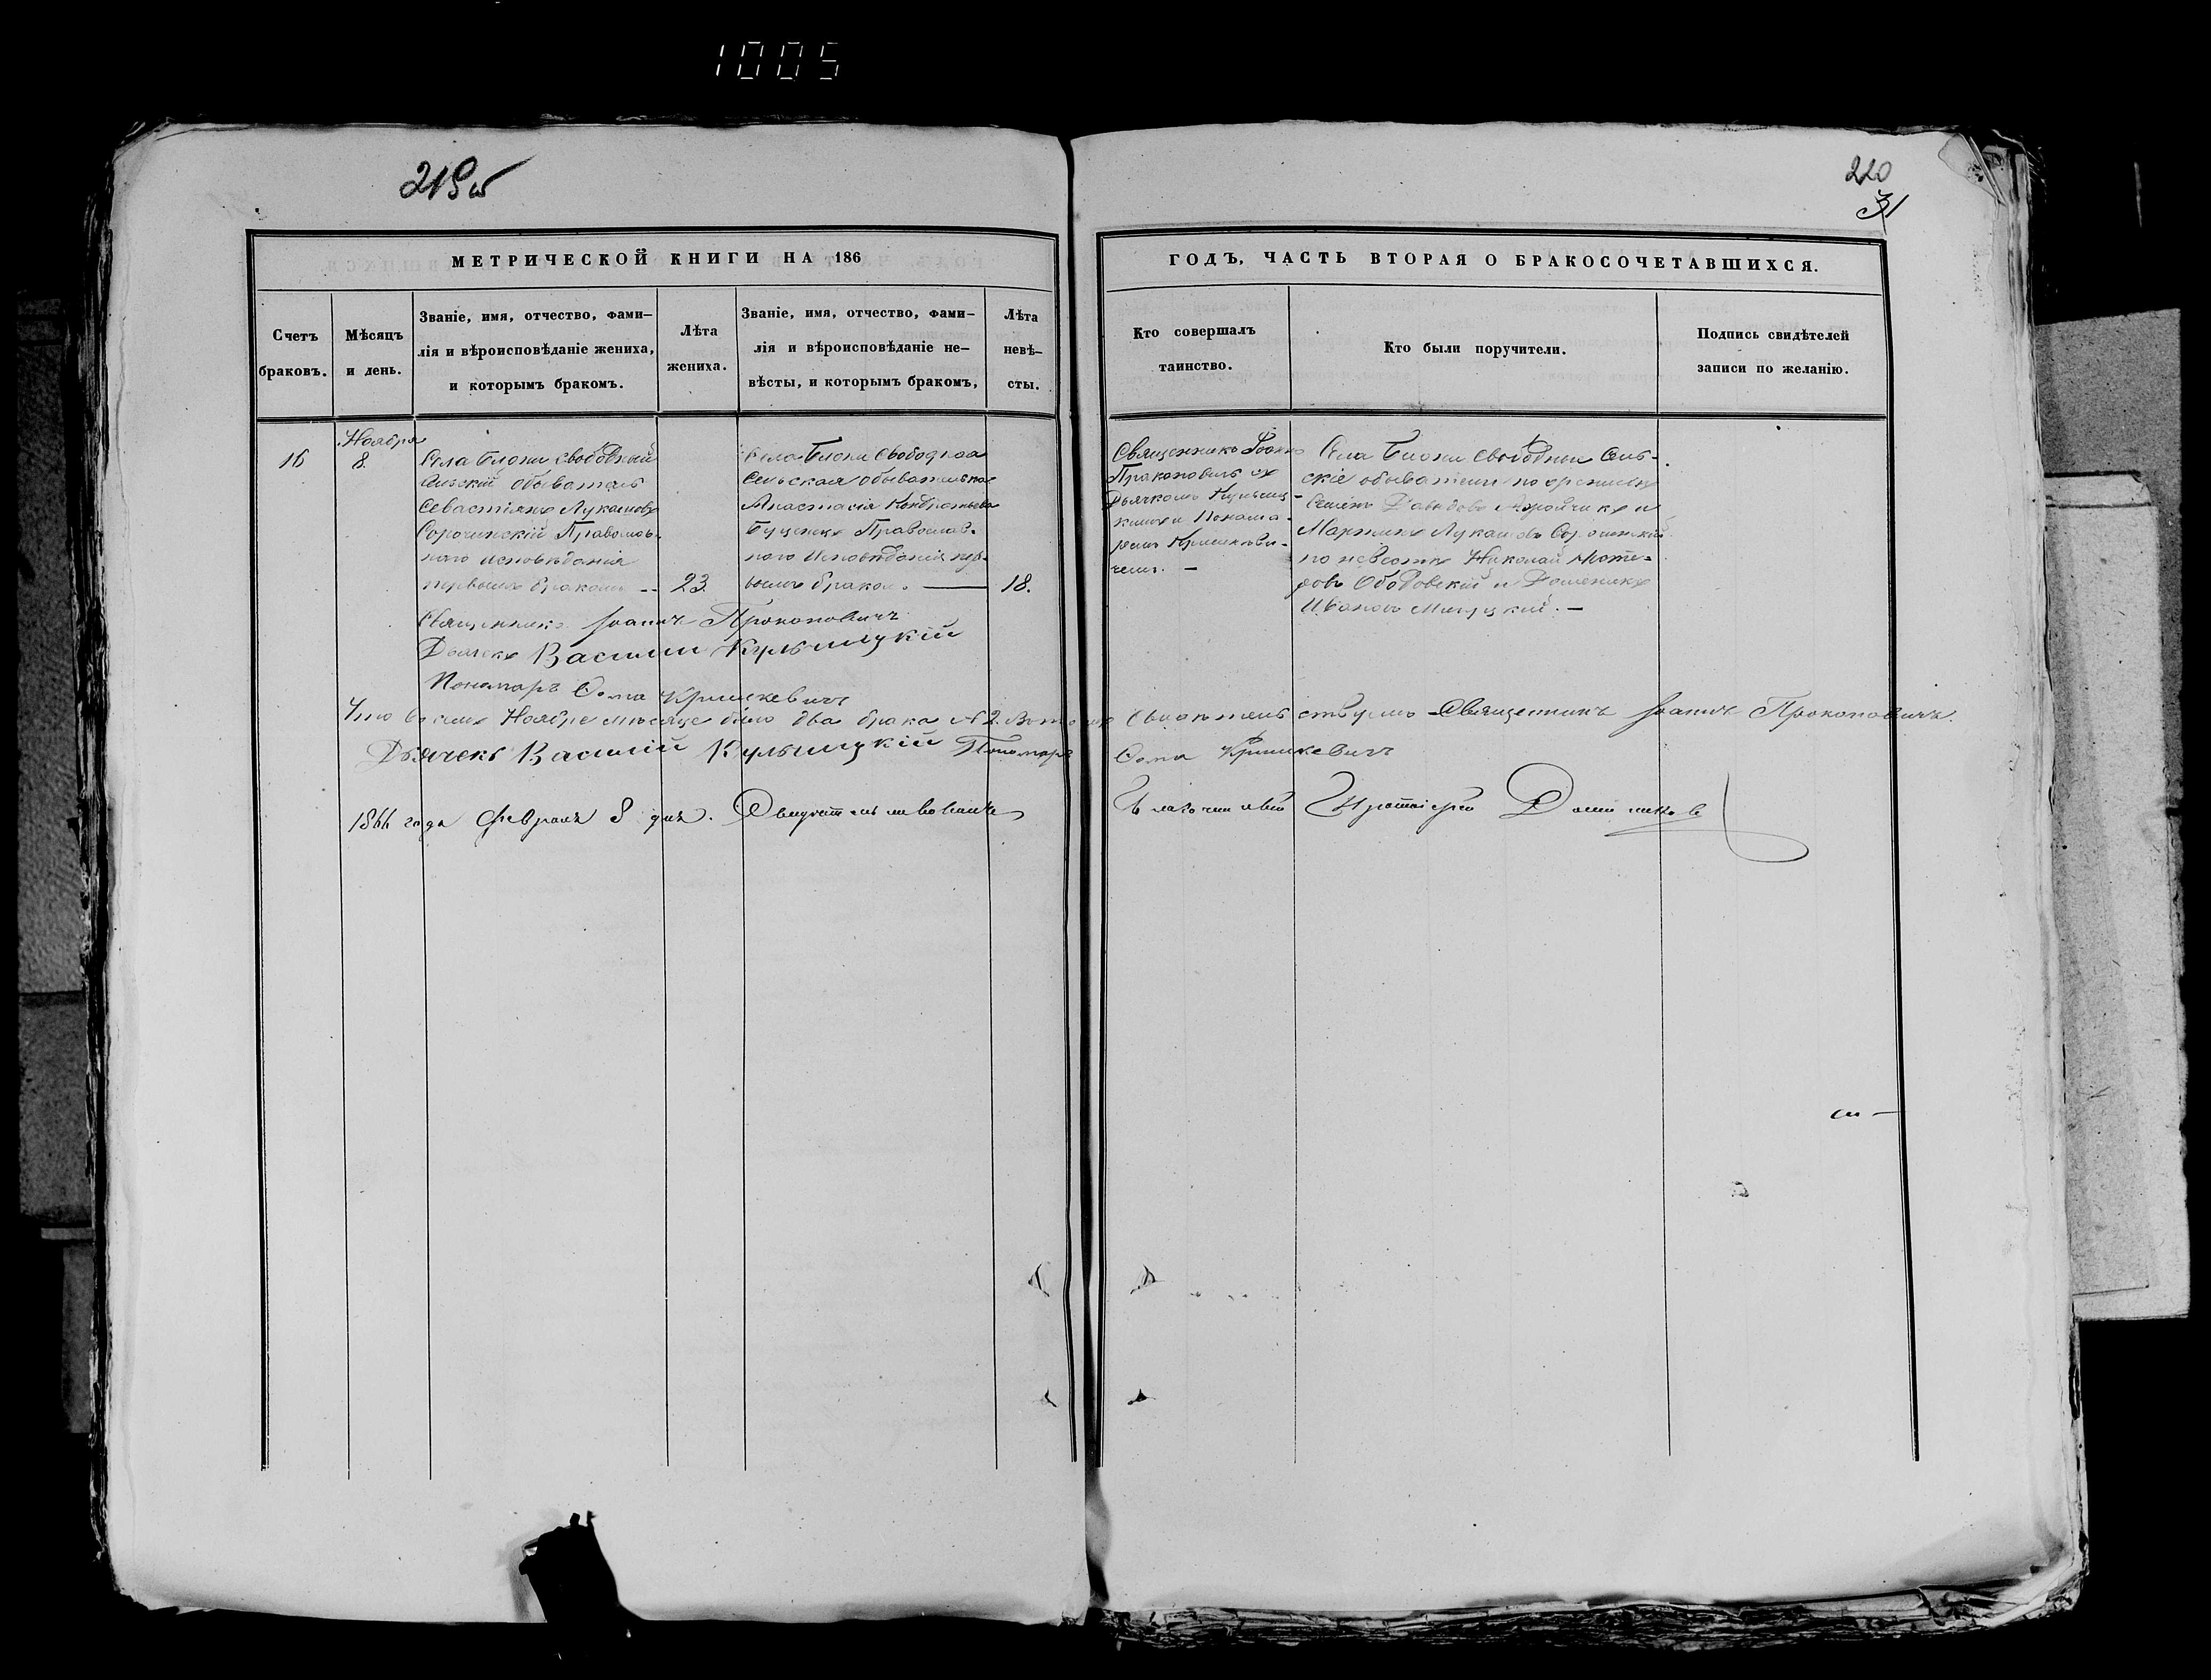 1005
219об
220
31
МЕТРИЧЕСКОЙ КНИГИ НА 186
Счетъ
браковъ.
Мѣсяцъ
и день.
Званіе, имя, отчество, фами–
лія и вѣроисповѣданіе жениха,
и которымъ бракомъ.
Лѣта
жениха.
Званіе, имя, отчество, фами–
лія и вѣроисповѣданіе не–
вѣсты, и которымъ бракомъ,
Лѣта
невѣ–
сты.
ГОДЪ, ЧАСТЬ ВТОРАЯ О БРАКОСОЧЕТАВШИХСЯ.
Кто совершалъ
таинство.
Кто были поручители.
Подпись свидѣтелей
записи по желанію.
16
Ноября
8.
Села свободный
Сельскій обыватель
Севастіянъ Лукановъ
Сорочинскій Православ-
наго исповѣданія
первымъ бракомъ --
23.
Села свободная
Сельская обывателька
Анастасія Кондратьева
Буценко Православ-
наго Исповѣданія пер-
вымъ бракомъ. —
18.
Священникъ Іоаннъ
Прокоповичъ съ
Дьячкомъ
и Понома-
ремъ Кришкеви-
чемъ. —
Села свободные Сель-
скіе обыватели по женихѣ
Семенъ Давидовъ и
Мартинъ Лукановъ Сорочинскій
по невестѣ Николай
Ободовскій и
Ивановъ
Священникъ Іоаннъ Прокоповичъ
Дьячекъ Василій Кульчицкій
Пономарь Ѳома Кришкевичъ
Что въ семъ Ноябре мѣсяце было два брака № 2. Въ томъ свидѣтельствуемъ Священникъ Іоаннъ Прокоповичъ.
Дьячекъ Василій Кульчицкій Пономарь Ѳома Кришкевичъ
1866 года февраля 8 дня. Свидѣтельствовалъ Благочинный Протоіерей